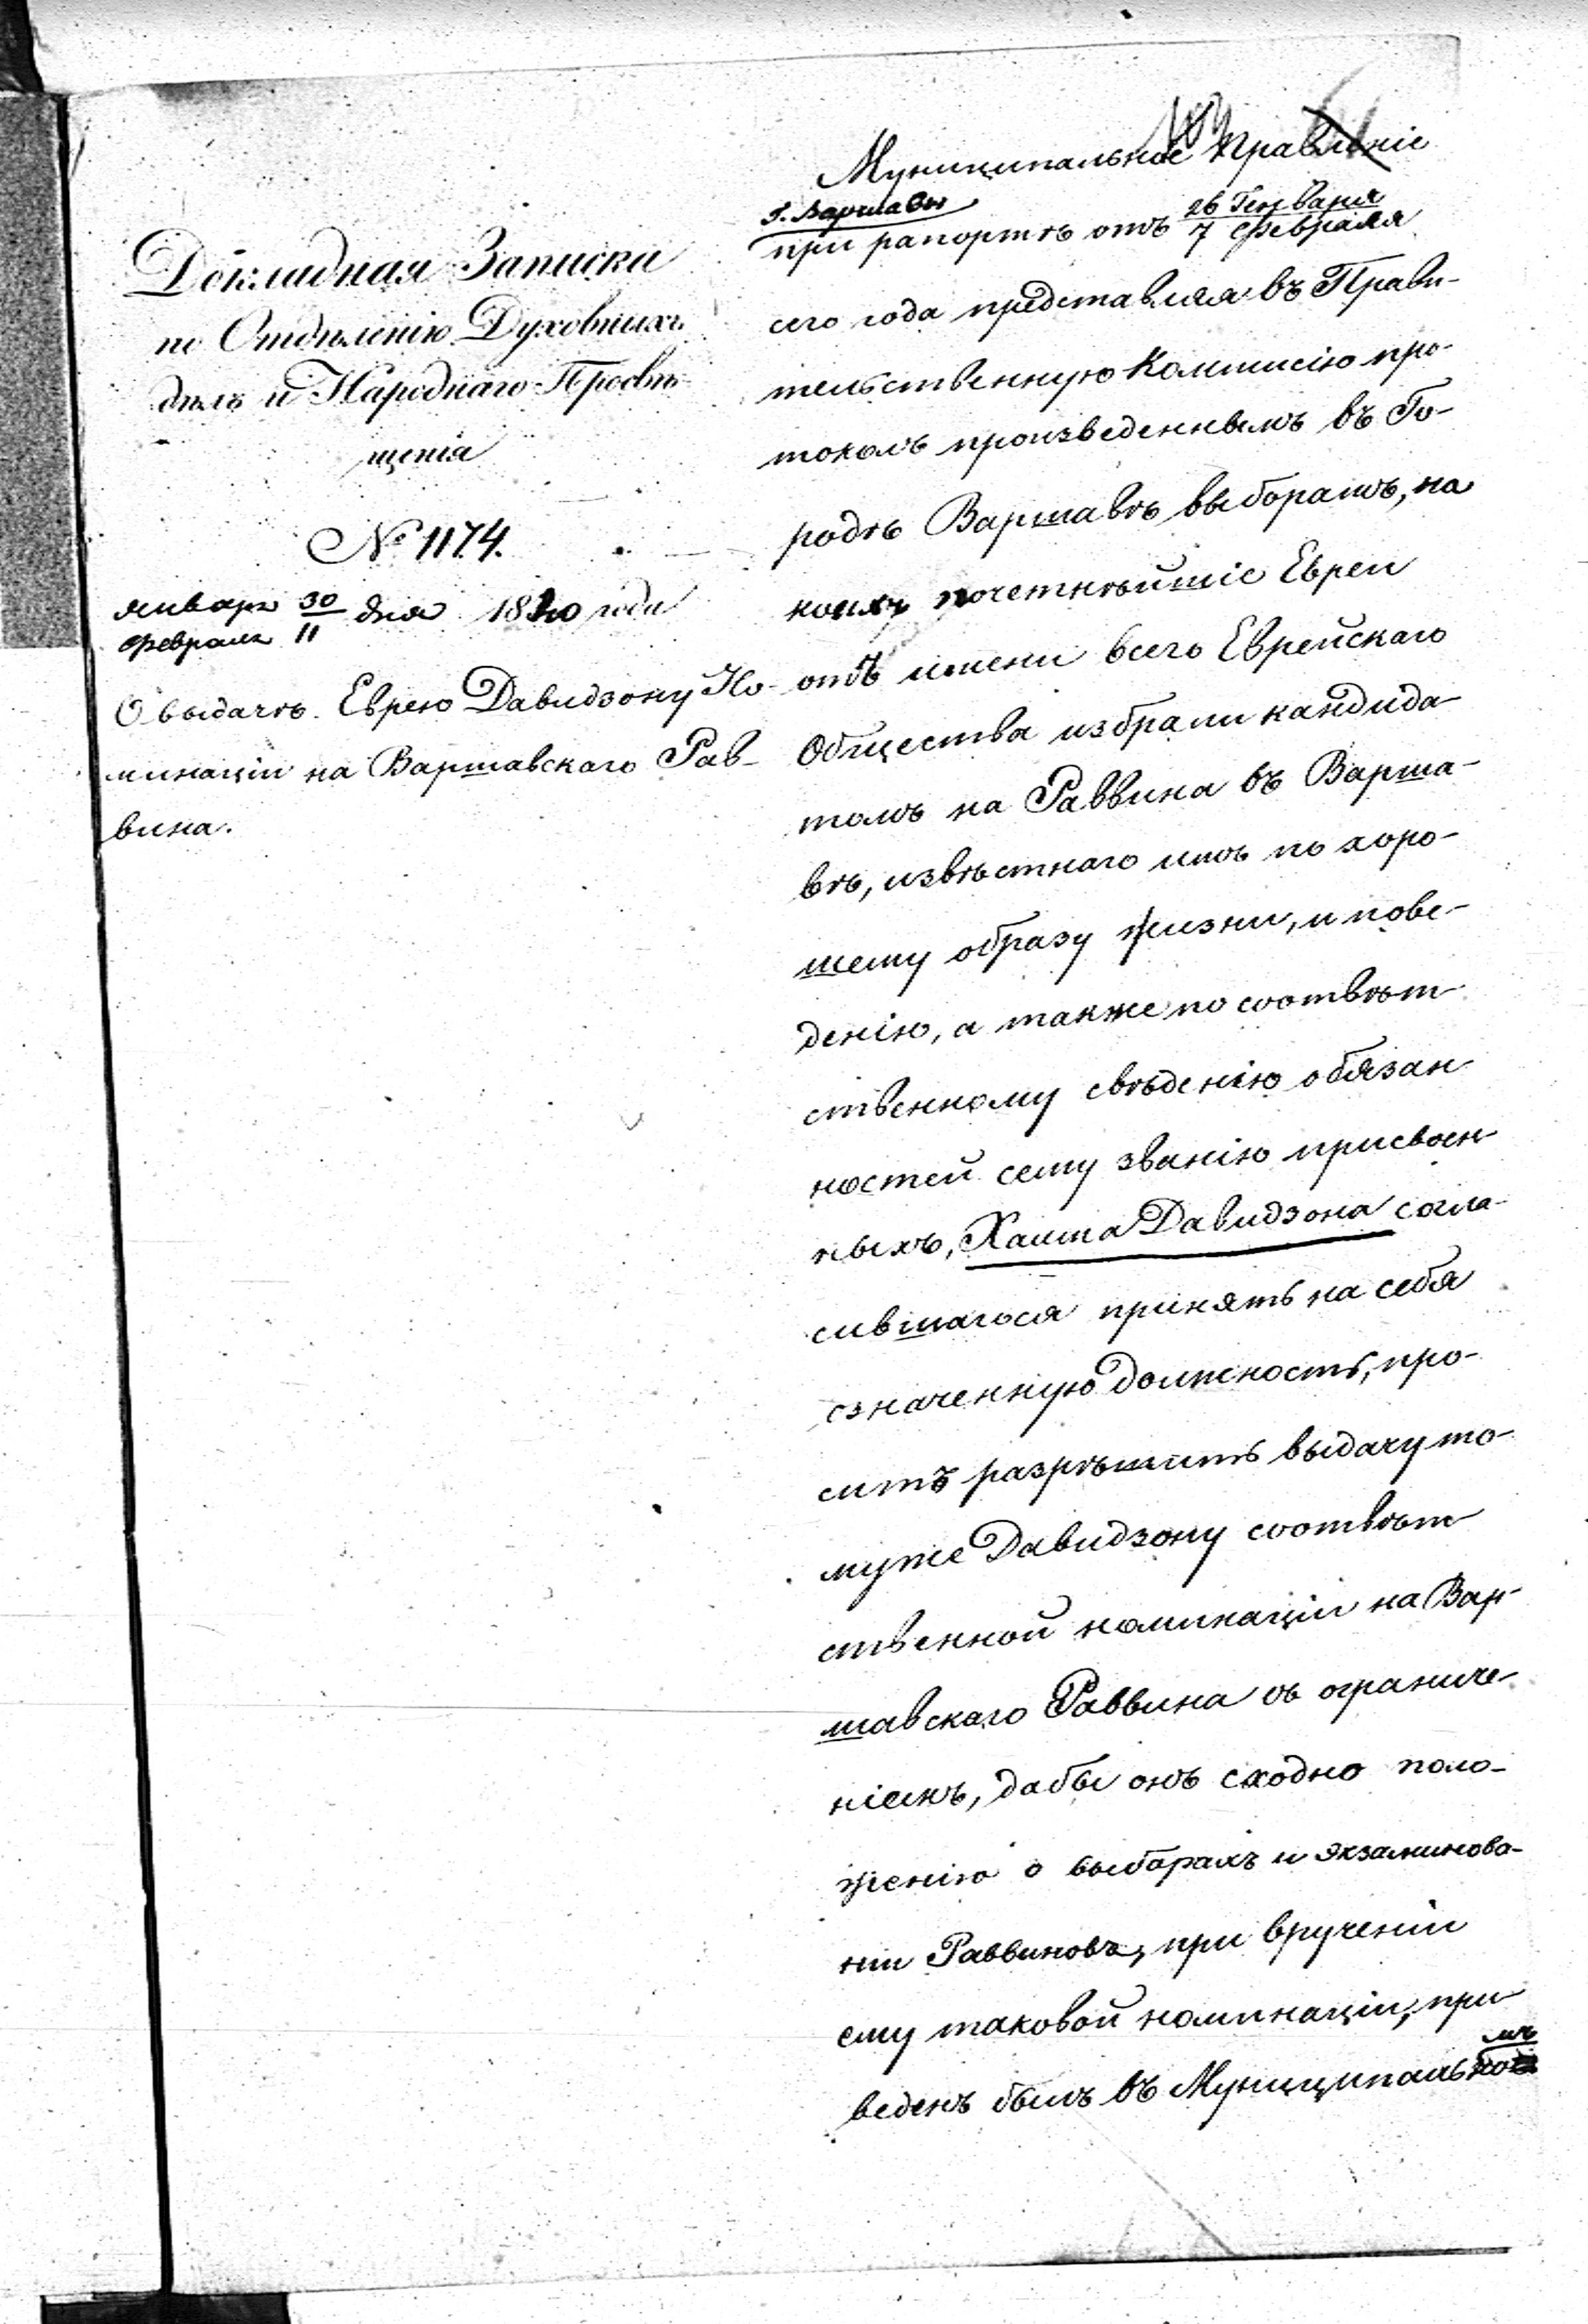 Докладная Записка
по Отдѣленію Духовныхъ
дѣлъ и Народнаго Просвѣ-
щенія
№ 1174.
января 30 / февраля 11 дня 1840 года
О выдачѣ Еврею Давидзону Но-
минаціи на Варшавскаго Рав-
вина.
Муниципальное Правленіе
г. Варшавы
при рапортѣ отъ 26 Генваря / 7 Февраля
сего года представляя въ Прави-
тельственную Коммисію про-
токолъ произведеннымъ въ Го-
родѣ Варшавѣ выборамъ, на
коихъ почетнѣйшіе Евреи
отъ имени всего Еврейскаго
Общества избрали кандида-
томъ на Раввина въ Варша-
вѣ, извѣстнаго имъ по хоро-
шему образу жизни, и пове-
денію, а также по соотвѣт
ственному свѣденію обязан
ностей сему званію присвоен
ныхъ, Хаима Давидзона согла-
сившагося принять на себя
означенную должность, про-
ситъ разрѣшить выдачу то-
муже Давидзону соотвѣт
ственной номинаціи на Вар-
шавскаго Раввина съ ограниче-
ніемъ, дабы онъ сходно поло-
женію о выборахъ и экзаминова-
ніи Раввиновъ, при врученіи
ему таковой номинаціи, при
веденъ былъ въ Муниципальномъ